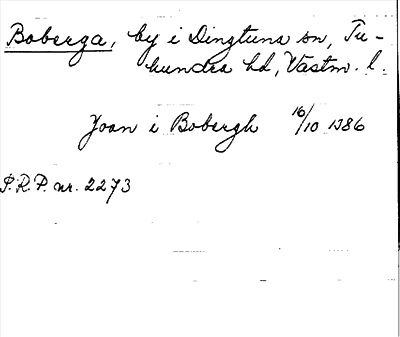 Boberga, by i Dingtuna sn, Tu-
hundra hd, Västm. l.
Joan i Bobergh 16/10 1386
S.R.P. nr. 2273